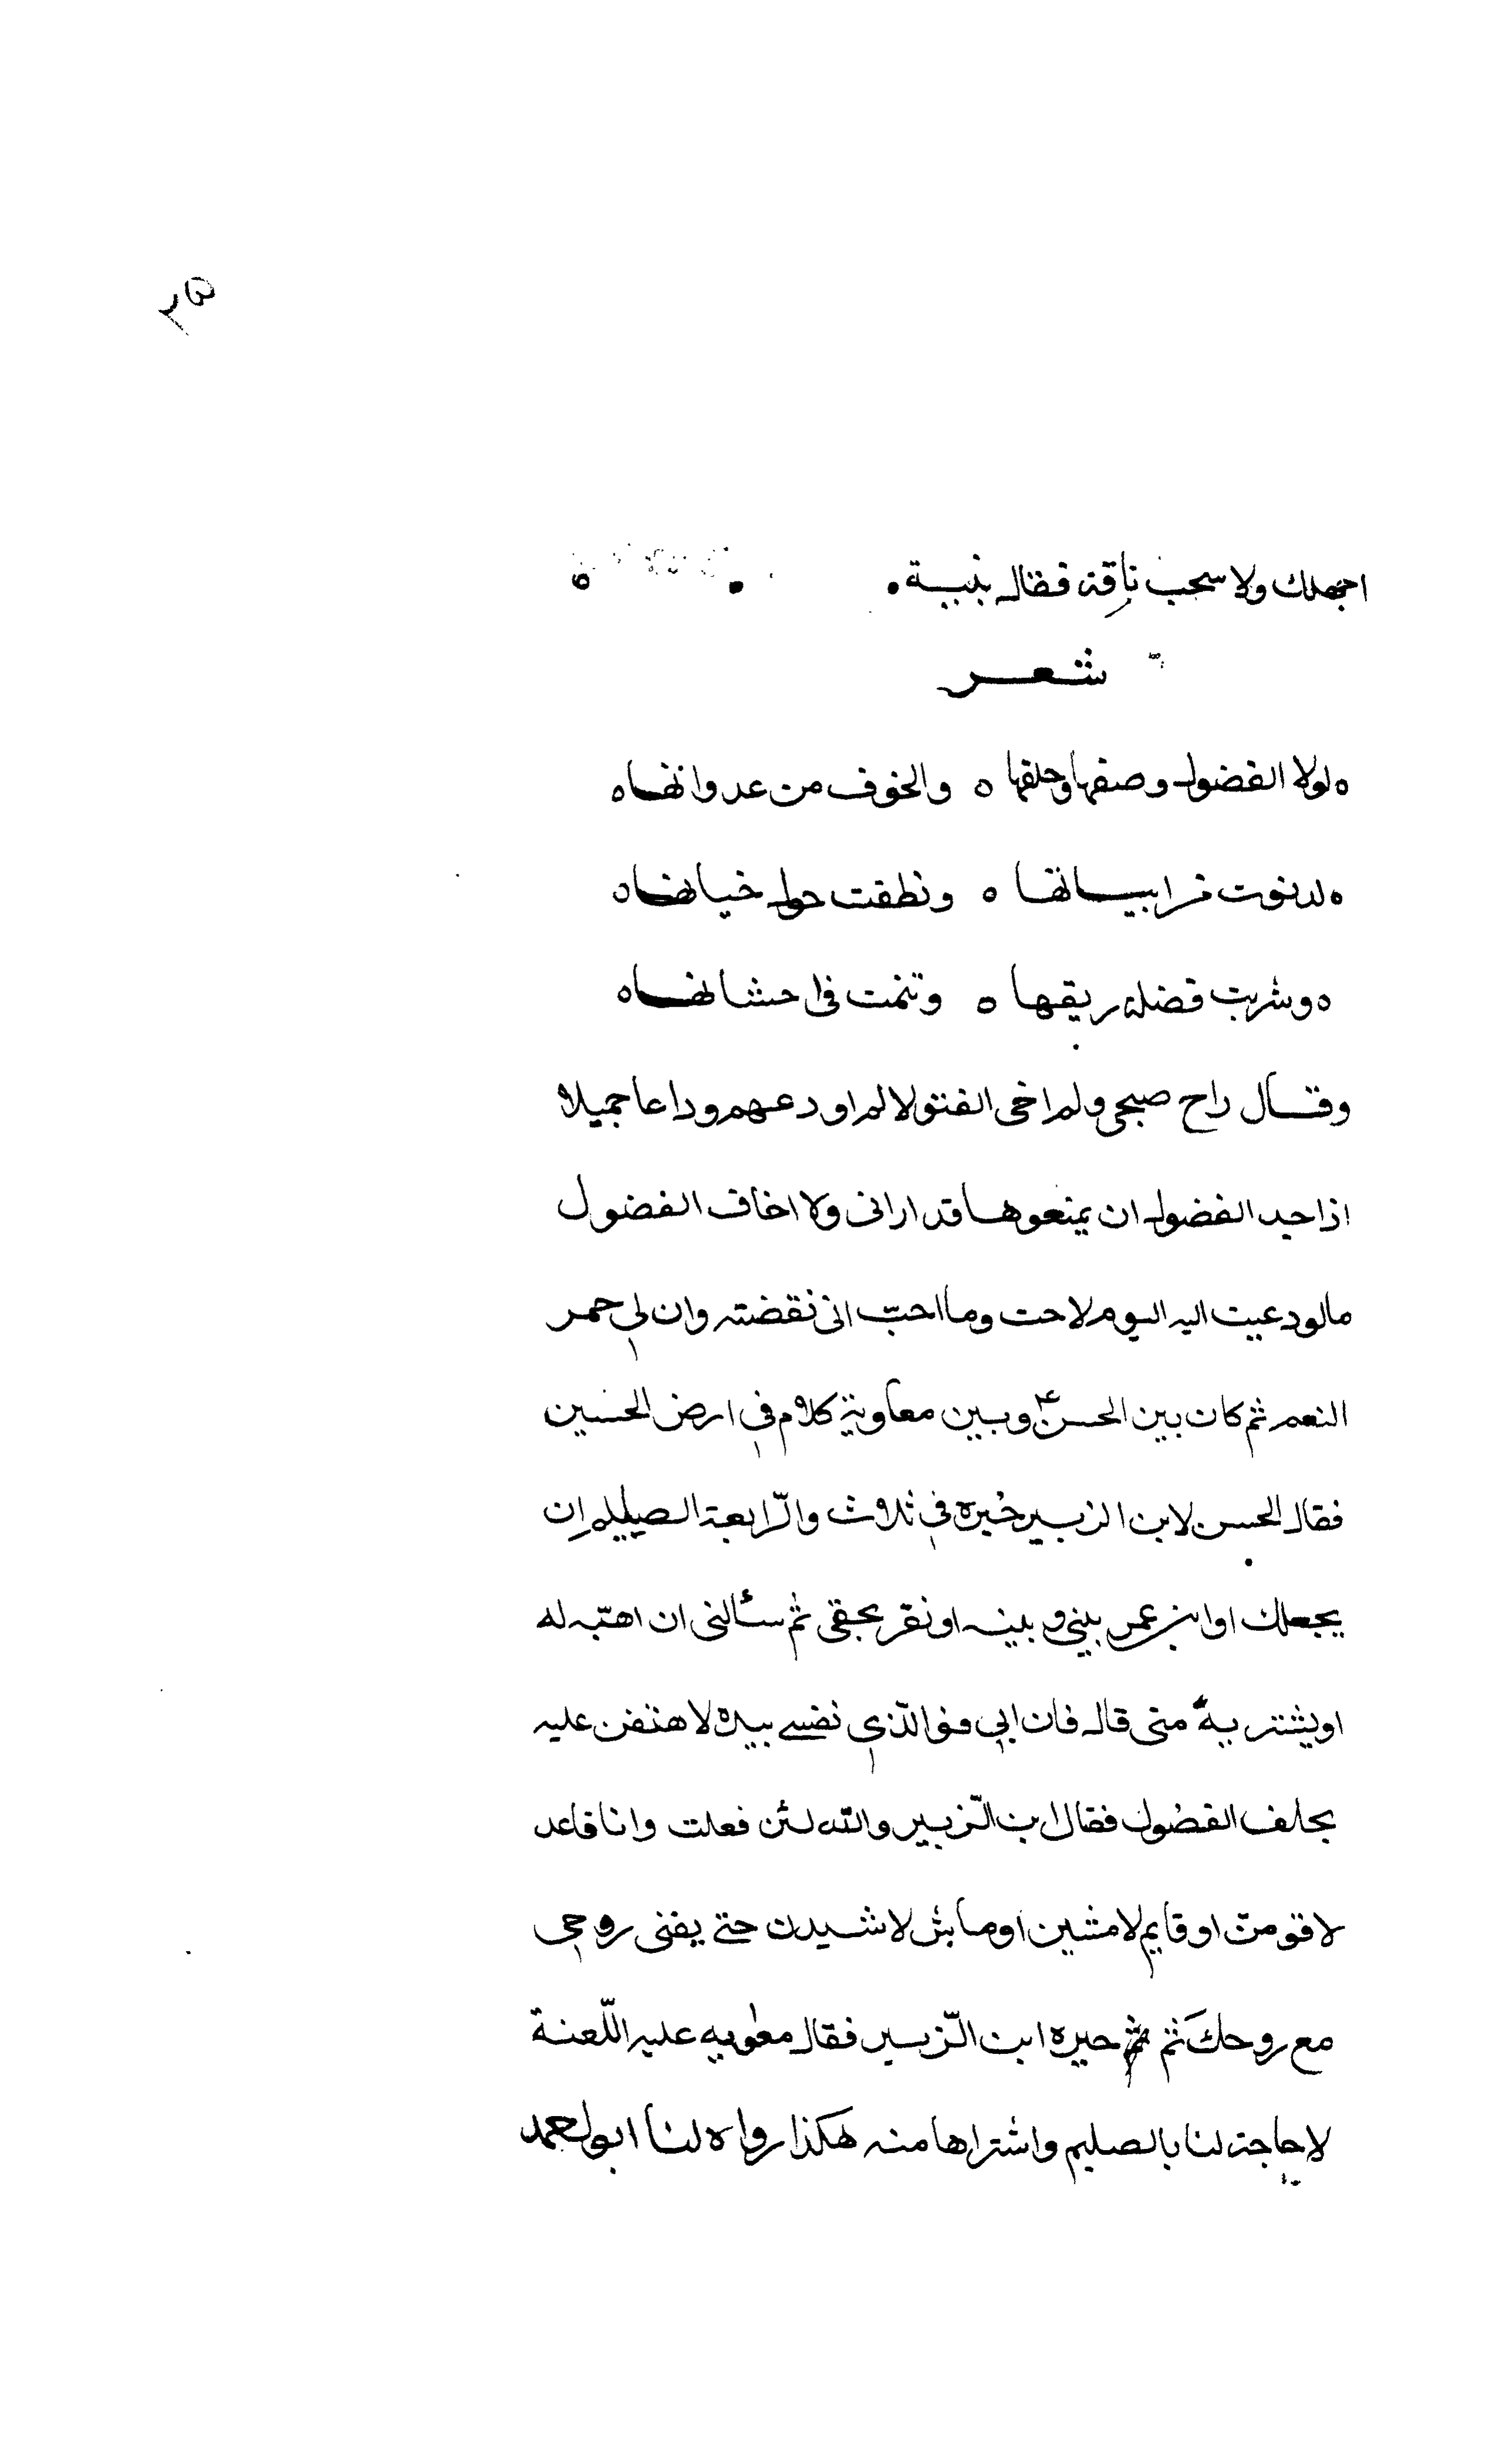 ٢٥
اجهلك ولا سحب ناقة فقال بنبية
شعر
ه لولا الفضول وصفها وحلفها ه والخوف من عدوانها ه
ه لدنوت من ابيـاتها ه ونطقت حول خيانها ه
ه وشربت فضلة ريقها ه وتنمت في احشانها ه
وقـال راح صبحى ولم اخى الفتولا لم اودعهم وداعا جميلا
اذا حيد الفضول ان يمنعوها قد ارانى ولا اخاف الفضول
مالودعيت اليه اليوم لاحت وما احبّ انى نقضته وان لى حمر
النعم ثم كان بين الحسن ع وبين معاوية كلام في ارض الحسين
فقال الحسن لابن الزبير خيره في ثلاث والرّابعة الصيليم ان
يجعلك او ابن عمر بيني وبينه او نقر بحقى ثم سئالنى ان اهبّه له
او يشتريه منى قال فان ابى فو الذى نفسى بيده لاهتفن عليه
بحلف الفضول فقال ابن الزّبير والله لئن فعلت وانا قاعد
لاقومنّ او قايم لامشين او ماش لاشيدن حتى يفنى روحى
مع روحك ثم ثم حيره ابن الزّبير فقال معويه عليه اللّعنة
لا حاجة لنا بالصليم واشتراها منه هكذا رواه لنا ابو احمد